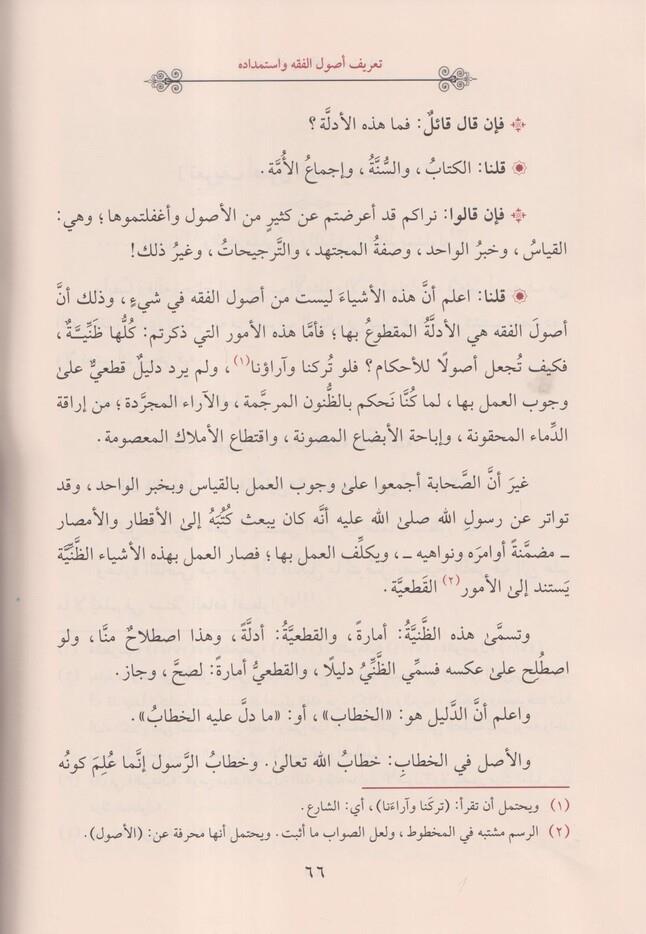 تعريف أصول الفقه واستمداده
فإن قال قائلٌ: فما هذه الأدلَّة؟
قلنا: الكتابُ، والسُّنَّةُ، وإجماعُ الأُمَّة.
فإن قالوا: نراكم قد أعرضتم عن كثيرٍ من الأصول وأغفلتموها؛ وهي:
القياسُ، وخبرُ الواحد، وصفةُ المجتهد، والتَّرجيحاتُ، وغيرُ ذلك!
قلنا: اعلم أنَّ هذه الأشياءَ ليست من أصول الفقه في شيءٍ، وذلك أنَّ
أصولَ الفقه هي الأدلَّةُ المقطوعُ بها؛ فأمَّا هذه الأمور التي ذكرتم: كُلُّها ظَنِّيـَّـةٌ،
فكيف تُجعل أصولًا للأحكام؟ فلو تُركنا وآراؤنا(١)، ولم يرد دليلٌ قطعيٌّ علىٰ
وجوب العمل بها، لما كُنَّا نَحكم بالظُّنون المرجَّمة، والآراء المجرَّدة؛ من إراقة
الدِّماء المحقونة، وإباحة الأبضاع المصونة، واقتطاع الأملاك المعصومة.
غيرَ أنَّ الصَّحابة أجمعوا علىٰ وجوب العمل بالقياس وبخبر الواحد، وقد
تواتر عن رسولِ الله صلىٰ الله عليه أنَّه كان يبعث كُتُبَهُ إلىٰ الأقطار والأمصار
ـ مضمَّنةً أوامرَه ونواهيه ـ، ويكلِّف العمل بها؛ فصار العمل بهذه الأشياء الظَّنِّيَّة
يَستند إلىٰ الأمور(٢) القَطعيَّة.
وتسمَّىٰ هذه الظَّنيَّةُ: أمارةً، والقطعيَّةُ: أدلَّةً، وهذا اصطلاحٌ منَّا، ولو
اصطُلِح علىٰ عكسه فسمِّي الظَّنِّيُّ دليلًا، والقطعيُّ أمارةً: لصحَّ، وجاز.
واعلم أنَّ الدَّليل هو: «الخطاب»، أو: «ما دلَّ عليه الخطابُ».
والأصل في الخطابِ: خطابُ الله تعالىٰ. وخطابُ الرَّسول إنَّما عُلِمَ كونُه
(١) ويحتمل أن تقرأ: (تركَنا وآراءَنا)، أي: الشارع.
(٢) الرسم مشتبه في المخطوط، ولعل الصواب ما أثبت. ويحتمل أنها محرفة عن: (الأصول).
٦٦